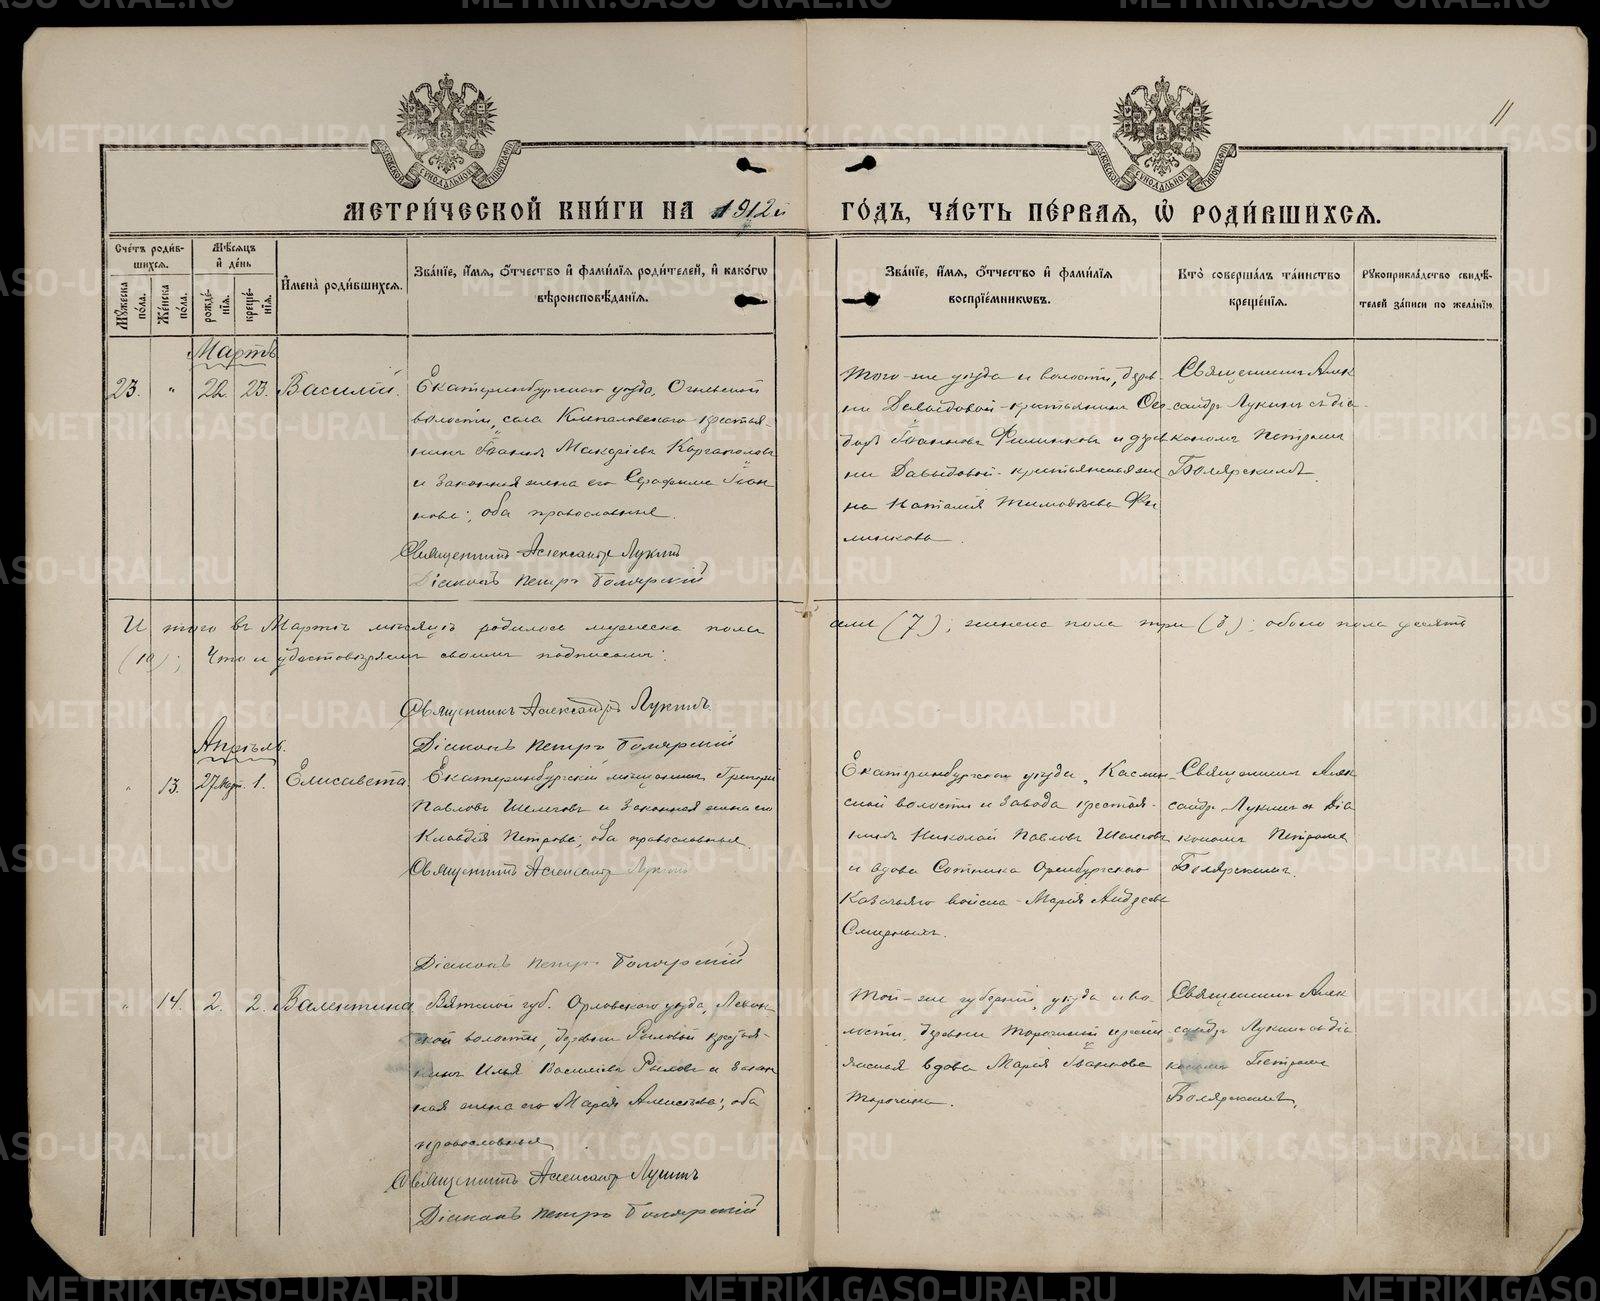 11
МЕТРИ́ЧЕСКОЙ КНИ́ГИ НА 1912й ГО́ДЪ, ЧА́СТЬ ПЕ́РВАЯ, Ѡ҆ РОДИ́ВШИХСЯ.
Сче́тъ роди́вшихся.
Му́жеска по́ла.
Же́нска по́ла.
Мѣ́сяцъ и҆ де́нь
рожде́нїя.
креще́нїя.
И҆мена̀ роди́вшихся.
Зва́нїе, и҆́мя, ѻ҆́тчество и҆ фами́лїя роди́телей, и҆ како́гѡ
вѣроисповѣ́данїя.
Зва́нїе, и҆́мя, ѻ҆́тчество и҆ фами́лїя
воспрїе́мникѡвъ.
Кто̀ соверша́лъ та́инство
креще́нїя.
Рꙋкоприкла́дство свидѣ́телей за́писи по жела́нїю.
Мартъ
23. " 22. 23. Василій.
Екатеринбургскаго уѣзда,
волости, села крестья-
нинъ Іоаннъ Макаріевъ Каргаполовъ
и законная жена его Серафима Іоан
нова; оба православные.
Священникъ Александръ Лукинъ
Діаконъ Петръ Боярскій
Того-же уѣзда и волости, дерев-
ни Давыдовой крестьянинъ Ѳео
доръ Іоанновъ Филинковъ и дерев
ни Давыдовой крестьянская же
на Наталія Тимоѳеева Фи
линкова.
Священникъ Алек
сандръ Лукинъ съ діа-
кономъ Петромъ
Боярскимъ
Итого въ Мартѣ мѣсяцѣ родилось мужеска пола семь (7); женска пола три (3); обоего пола десять
(10); Что и удостовѣряемъ своимъ подписомъ:
Священникъ Александръ Лукинъ.
Діаконъ Петръ Боярскій
Апрѣль.
" 13. 27 Март. 1. Елисавета.
Екатеринбургскій мѣщанинъ Григорій
Павловъ Шелеговъ и законная жена его
Клавдія Петрова; оба православные.
Священникъ Александръ Лукинъ
Діаконъ Петръ Боярскій
Екатеринбургскаго уѣзда, Каслин-
ской волости и завода крестья-
нинъ Николай Павловъ Шелеговъ
и вдова Сотника Оренбургскаго
Казачьяго войска Марія Андреева
Смирныхъ.
Священникъ Алек
сандръ Лукинъ съ діа
кономъ Петромъ
Боярскимъ.
" 14. 2. 2. Валентина
Вятской губ. Орловскаго уѣзда,
ской волости, деревни Рыловой крестья-
нинъ Илья Васильевъ Рыловъ и закон
ная жена его Марія Алексѣева; оба
православные
Священникъ Александръ Лукинъ
Діаконъ Петръ Боярскій
Той-же губерніи, уѣзда и во-
лости, деревни Торопиной крестьянская вдова Марія Іоаннова
Торопина.
Священникъ Алек
сандръ Лукинъ съ діа
кономъ Петромъ
Боярскимъ.
METRIKI.GASO-URAL.RU